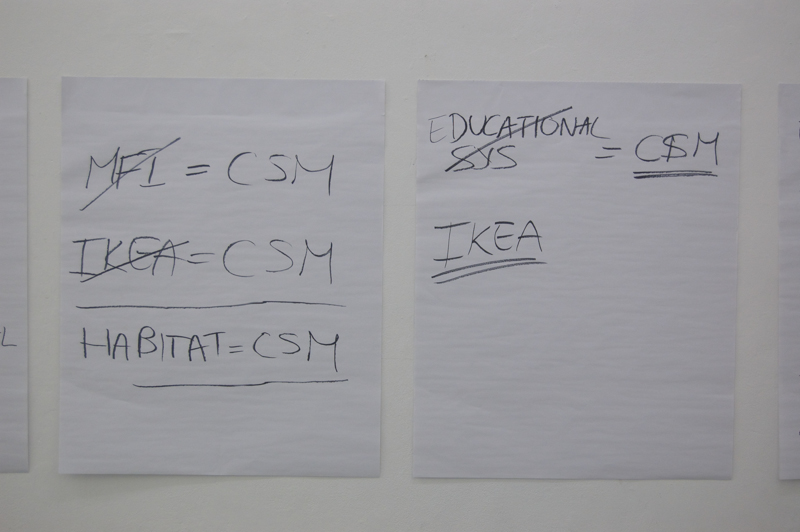 MFI = CSM
IKEA = CSM
HABITAT = CSM
EDUCATIONAL
SYS = C$M
IKEA